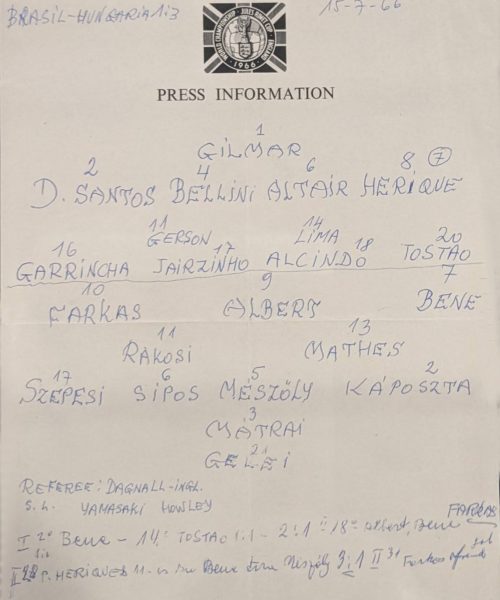 BRASIL-HUNGARIA 1:3 15-7-66
WORLD CHAMPIONSHIP · JULES RIMET CUP · ENGLAND · 1966 ·
PRESS INFORMATION
1
GILMAR
2 4 6 8 7
D. SANTOS BELLINI ALTAIR HERIQUE
11 14
GERSON LIMA
16 17 18 20
GARRINCHA JAIRZINHO ALCINDO TOSTAO
10 9 7
FARKAS ALBERT BENE
11 13
RÁKOSI MATHES
17 6 5 2
SZEPESI SÍPOS MÉSZÖLY KÁPOSZTA
3
MÁTRAI
21
GELEI
REFEREE: DAGNALL-INGL.
S. L. YAMASAKI HOWLEY
FARKAS
I 2º BENE - 14º TOSTAO 1:1 - 2:1 18º Albert, Bene
II P. HERIQUES 11. Bene Mészöly 3:1 II 31 Farkas